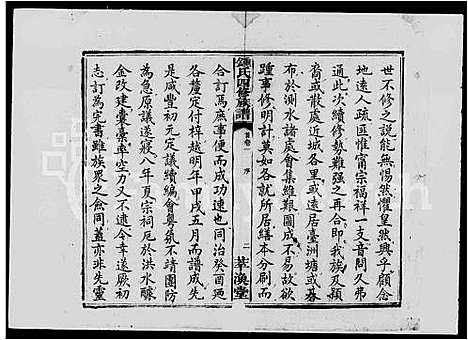 世不修之説能無惕然懼皇然興乎顧念
地遠人疏區惟甯宗福祥一支音問久弗
通此次續修勢難强之再合即我族及穎
裔或散處近城各里或遠居臺洲塘或碁
布於測水諸處會集維艱圖成不易故欲
踵事修明計莫如各就所居繕本分刷而
合訂焉庶事便而成功速也同治癸酉遂
各釐定付梓越明年甲戌五月而譜成先
鍾氏四修族譜
首卷一 序
二 萃渙堂
是咸豐初元定議續編會粤氛不靖團防
為急原議遂寢八年夏宗祠厄於洪水釀
金改建橐槖率空力又不逮今幸遂厥初
志訂為完書雖族界之僉同蓋亦非先靈